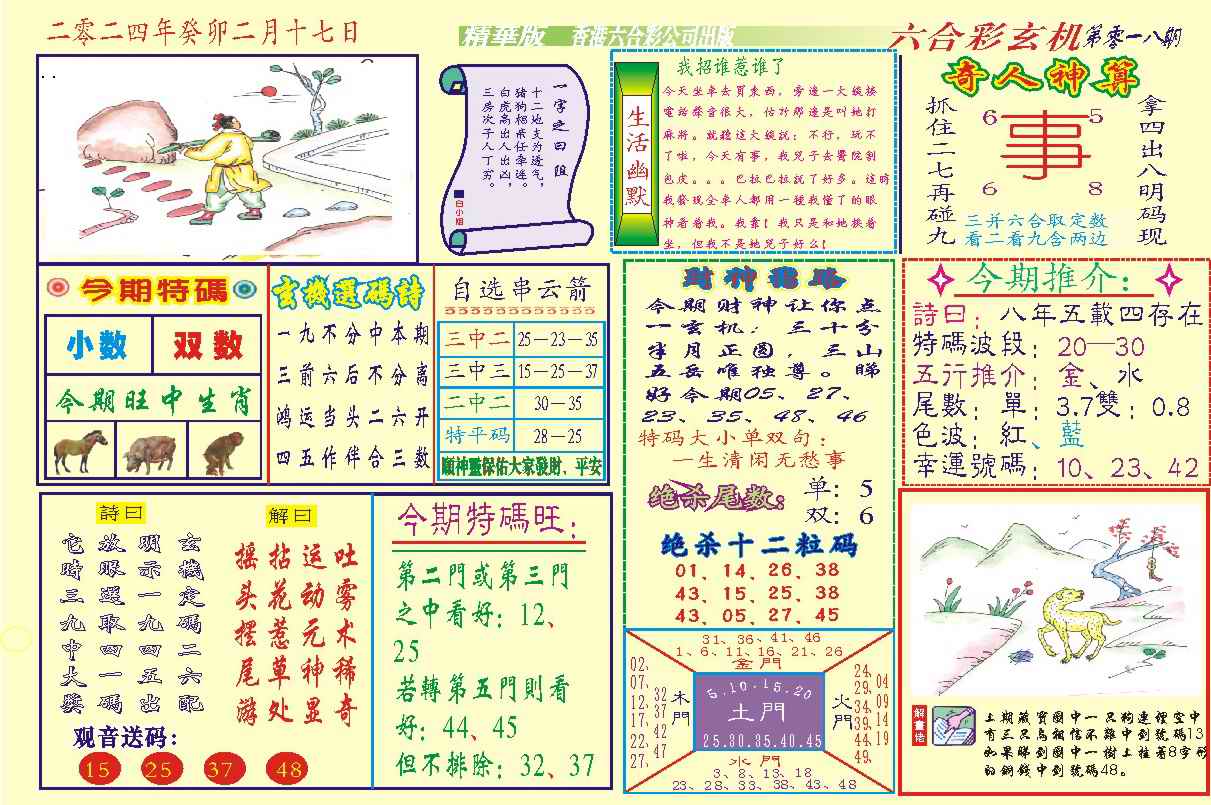 二零二四年癸卯二月十七日
精華版 香港六合彩公司出版
六合彩玄机第零一八期
一字之曰 阻
十二地支为透气，
猪狗相乘任牵连。
白虎高出出人凶，
三房次子人丁穷。
白小姐
生活幽默
我招谁惹谁了
今天坐车去買东西，旁邊一大嫂接
電话聲音很大，估计那邊是叫她打
麻將。就聽這大嫂說：不行，玩不
了啦，今天有事，我兒子去醫院割
包皮。。。巴拉巴拉說了好多。這時
我發現全車人都用一種我懂了的眼
神看着我。我靠！我只是和她挨着
坐，但我不是她兒子好么！
奇人神算
抓住二七再碰九
6 5
事
6 8
三并六合取定数
看二看九含两边
拿四出八明码现
今期特碼
小数 双数
今期旺中生肖
玄機選碼詩
一九不分中本期
三前六后不分离
鸿运当头二六开
四五作伴合三数
自选串云箭
三中二 25－23－35
三中三 15－25－37
二中二 30－35
特平码 28－25
願神靈保佑大家發財、平安
財神
今期财神让你点
一玄机：三十分
半月正圆，三山
五岳唯独尊。睇
好今期05、27、
23、35、48、46
特码大小单双句：
一生清闲无愁事
绝杀尾数：
单：5
双：6
绝杀十二粒码
01、14、26、38
43、15、25、38
43、05、27、45
今期推介：
詩曰：八年五載四存在
特碼波段：20—30
五行推介：金、水
尾數：單：3.7雙：0.8
色波：紅、藍
幸運號碼：10、23、42
詩曰
玄機定碼二六配
明示一九五出
放眼選取四一碼
它時三九中大獎
解曰
吐雾术稀奇
运动元神显
拈花惹草处
摇头摆尾游
观音送码：
15 25 37 48
今期特碼旺：
第二門或第三門
之中看好：12、
25
若轉第五門則看
好：44、45
但不排除：32、37
31、36、41、46
1、6、11、16、21、26
金門
02、07、12、17、22、27、
32 37 42 47
木門
5.10.15.20
土門
25.30.35.40.45
火門
24、29、34、39、44、49、
04 09 14 19
水門
3、8、13、18
23、28、33、38、43、48
解畫佬
上期藏寶圖中一只狗連裡空中
有三只鳥相信不難中到號碼13
如果睇到圖中一樹上挂著8字形
的銅錢中到號碼48。